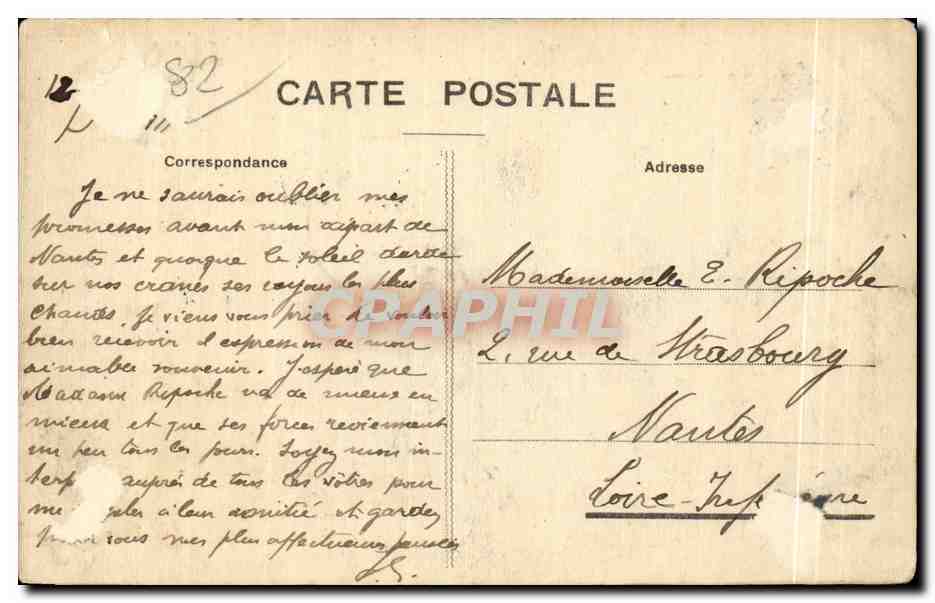 12
82
CARTE POSTALE
Correspondance
Adresse
Je ne saurais oublier mes
promesses avant mon départ de
Nantes et quoique le soleil darde
sur nos crânes ses rayons les plus
chauds, je viens vous prier de vouloir
bien recevoir l'expression de mon
aimable souvenir. J'espère que
Madame Ripoche va de mieux en
mieux et que ses forces reviennent
un peu tous les jours. Soyez mon in-
terp auprès de tous les vôtres pour
me à leur amitié et gardez
pour vous mes plus affectueuses pensées
Mademoiselle E. Ripoche
2, rue de Strasbourg
Nantes
Loire-Inf ieure
CPAPHIL